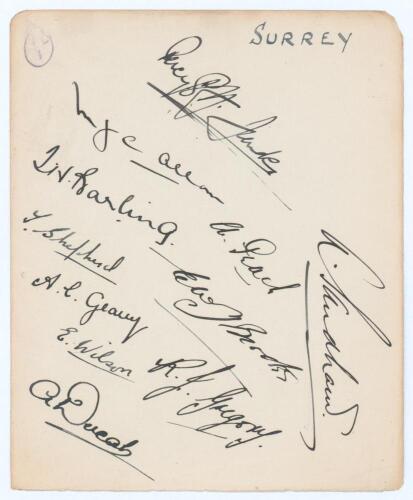 SURREY
Percy G. H. Fender
M J C Allom
T. H. Barling.
A. Peach
T. Shepherd
A. C. Geary
E. W. J. Brooks
A. Sandham.
E. Wilson
R. J. Gregory.
A Ducat